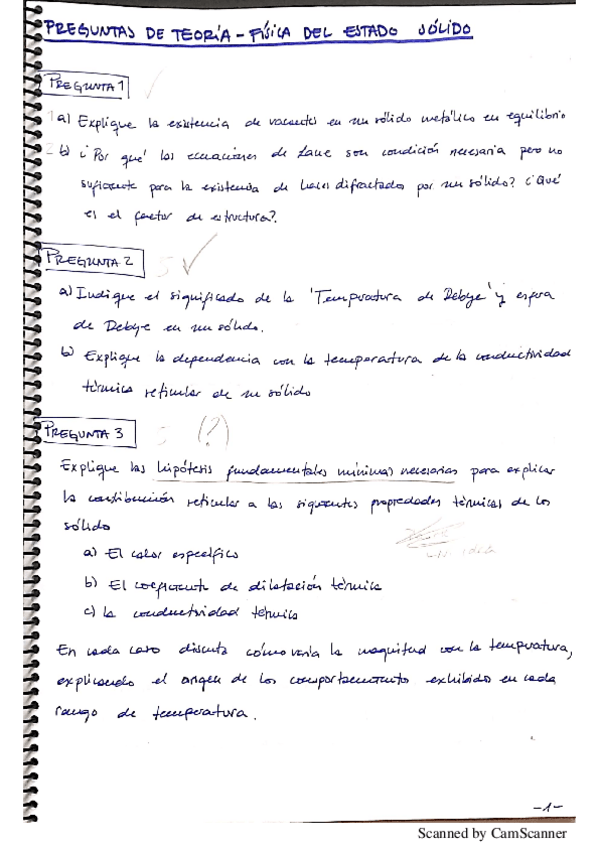 PREGUNTAS DE TEORÍA - FÍSICA DEL ESTADO SÓLIDO
PREGUNTA 1
a) Explique la existencia de vacantes en un sólido metálico en equilibrio
b) ¿Por qué las ecuaciones de Laue son condición necesaria pero no
suficiente para la existencia de haces difractados por un sólido? ¿Qué
es el factor de estructura?
PREGUNTA 2
a) Indique el significado de la 'Temperatura de Debye' y esfera
de Debye en un sólido.
b) Explique la dependencia con la temperatura de la conductividad
térmica reticular de un sólido
PREGUNTA 3 (?)
Explique las hipótesis fundamentales mínimas necesarias para explicar
la contribución reticular a las siguientes propiedades térmicas de los
sólido
a) El calor específico
b) El coeficiente de dilatación térmica
c) la conductividad térmica
En cada caso discuta cómo varía la magnitud con la temperatura,
explicando el origen de los comportamiento exhibido en cada
rango de temperatura.
-1-
Scanned by CamScanner